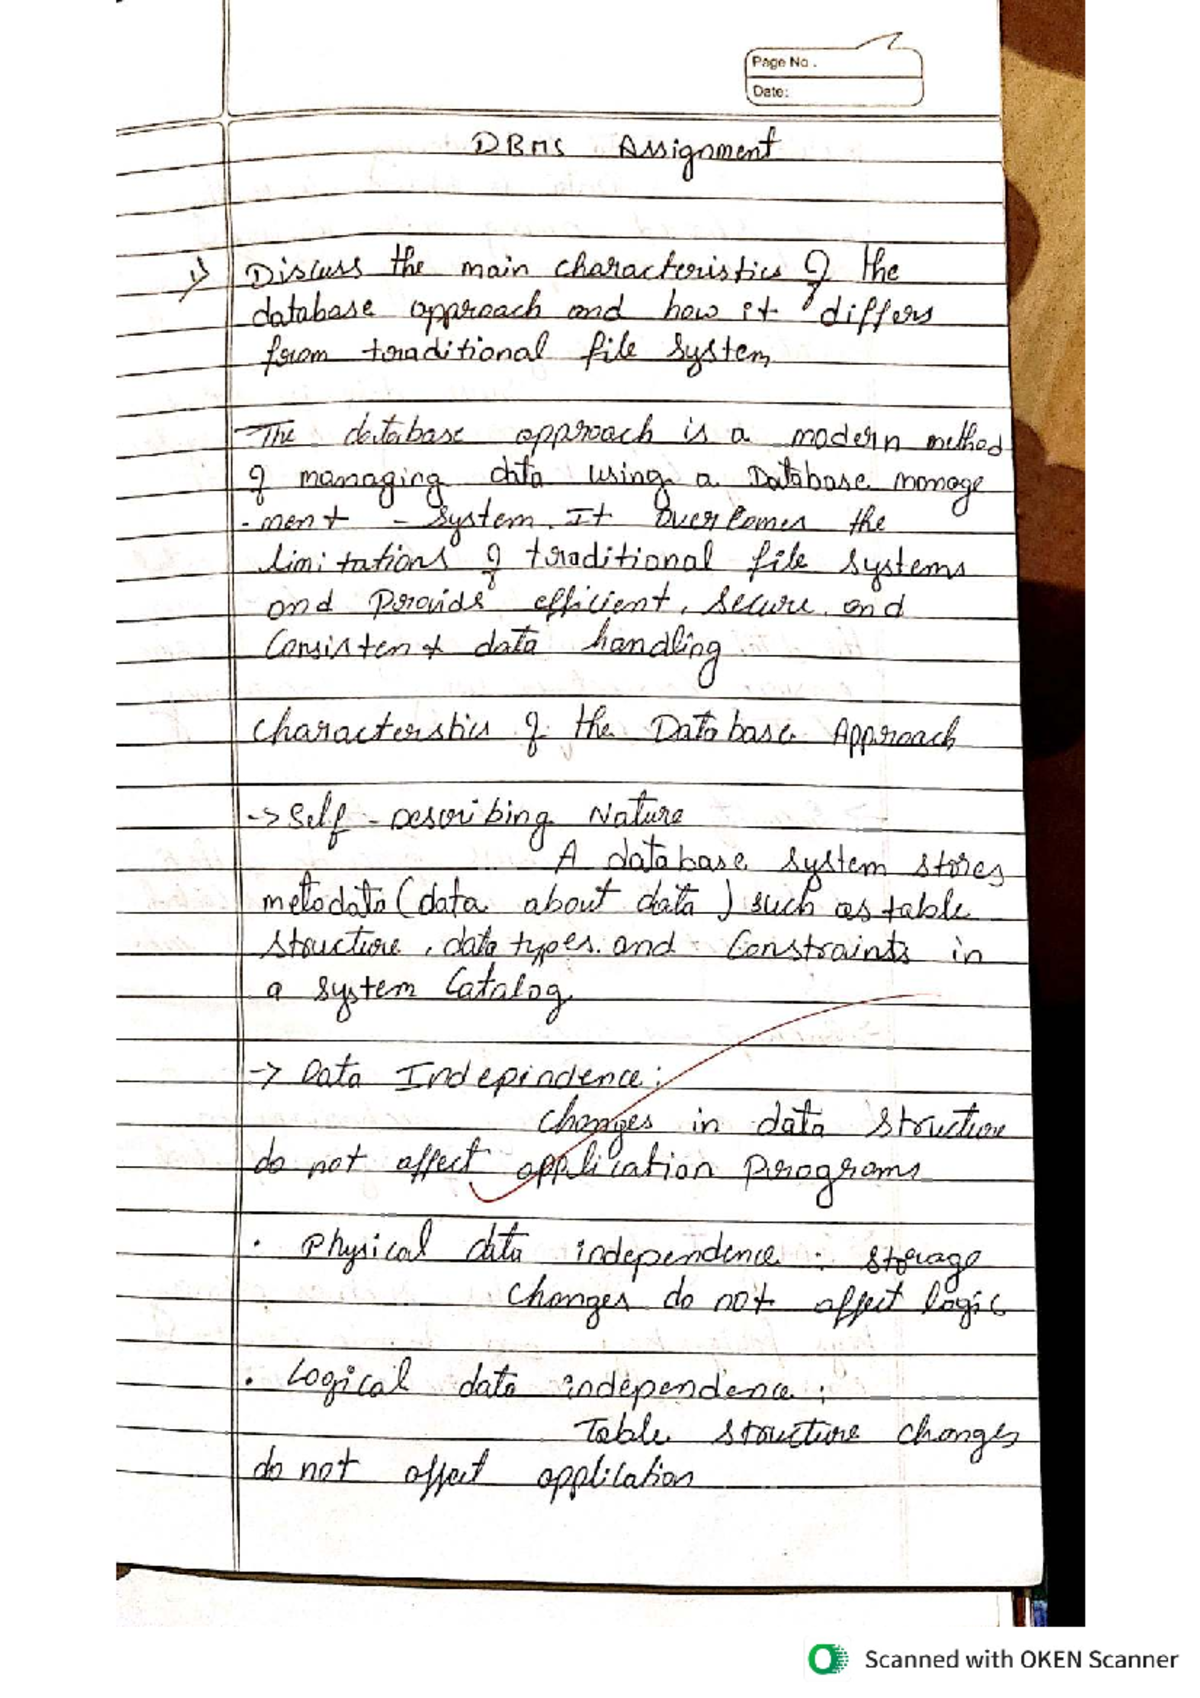 Page No.
Date:
DBMS Assignment
1) Discuss the main characteristics of the
database approach and how it differs
from traditional file system
The database approach is a modern method
of managing data using a Database manage
-ment - System. It overcomes the
limitations of traditional file systems
and provide efficient, secure, and
Consistent data handling
Characterstics of the Database Approach
-> Self - Describing Nature
A database system stores
metadata (data about data) such as table
structure, data types. and Constraints in
a system Catalog.
-> Data Indepindence:
Changes in data structure
do not affect application programs
• Physical data independence : storage
Changes do not affect logic
• Logical data independence :
Table structure changes
do not affect application
Scanned with OKEN Scanner